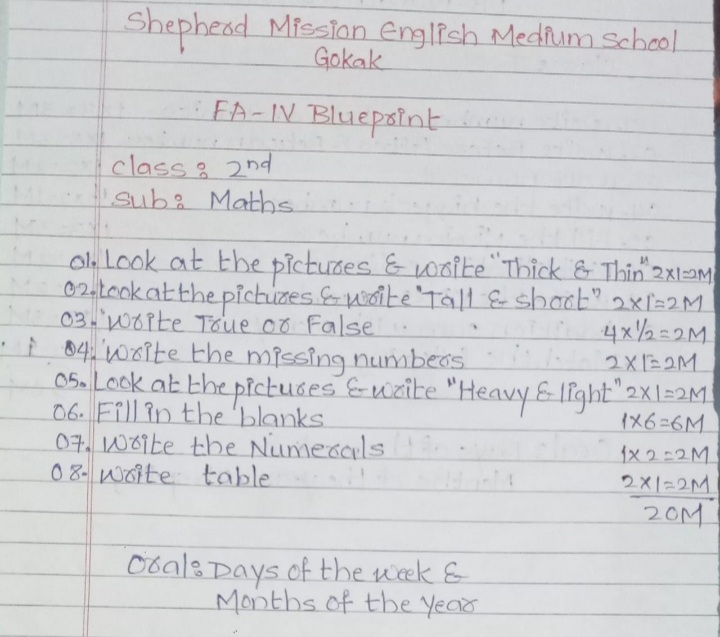 Shepherd Mission English Medium School
Gokak
FA-IV Blueprint
class: 2nd
Sub: Maths
01. Look at the pictures & write "Thick & Thin" 2x1=2M
02. Look at the pictures & write "Tall & short" 2x1=2M
03. Write True or False 4x1/2=2M
04. Write the missing numbers 2x1=2M
05. Look at the pictures & write "Heavy & light" 2x1=2M
06. Fill in the blanks 1x6=6M
07. Write the Numerals 1x2=2M
08- Write table 2x1=2M
20M
Oral: Days of the week &
Months of the year